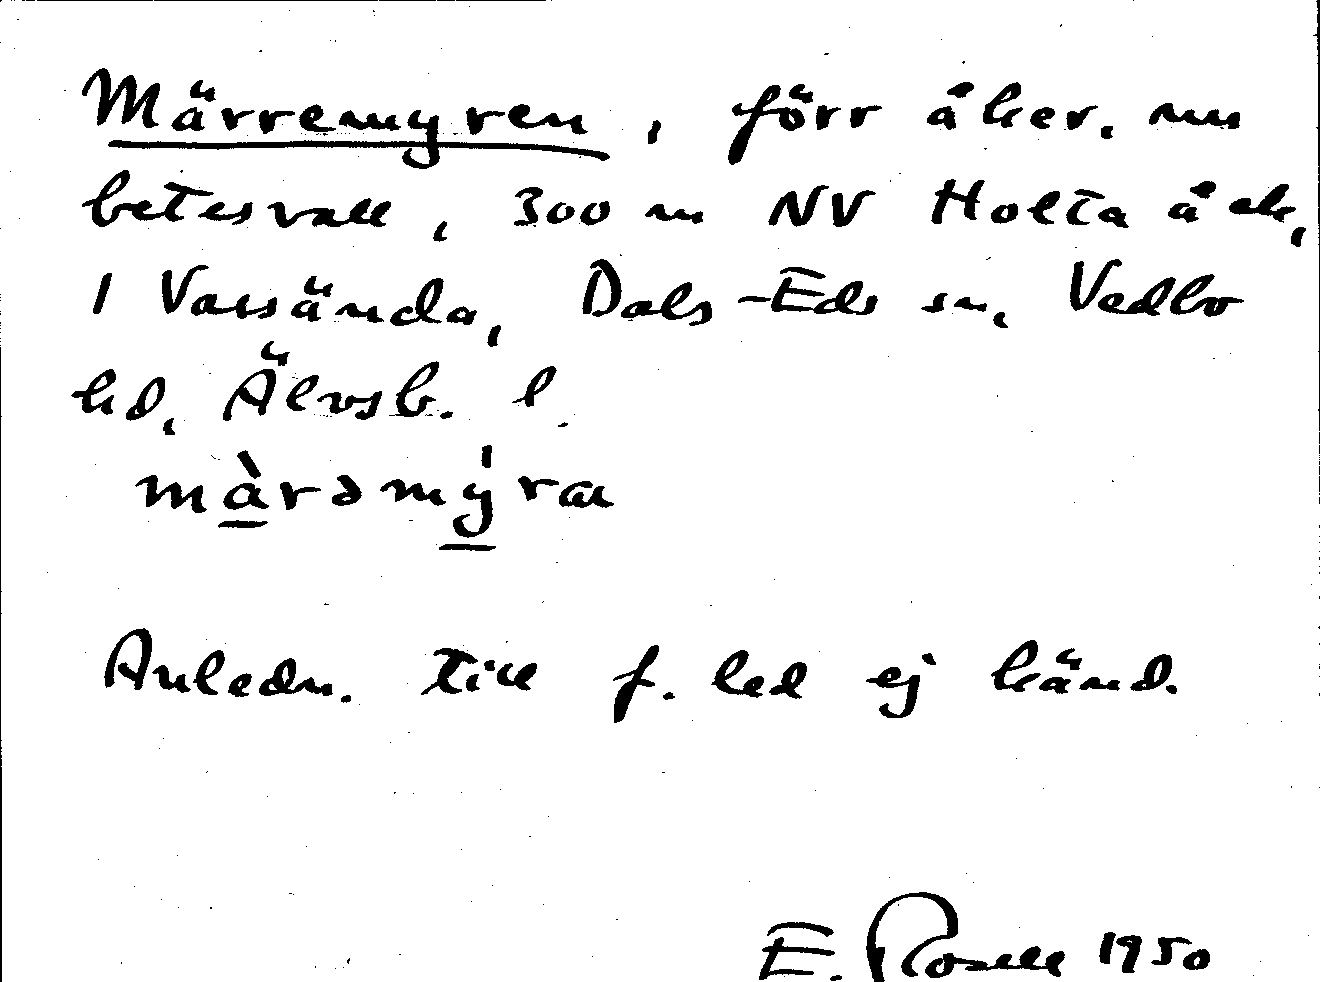 Märremyren, förr åker, nu
betesvall, 300 m NV Holta åk,
1 Vassända, Dals-Eds sn, Vedbo
hd, Älvsb. l.
màrəmýra
Anledn. till f. led ej känd.
E. Rosell 1950